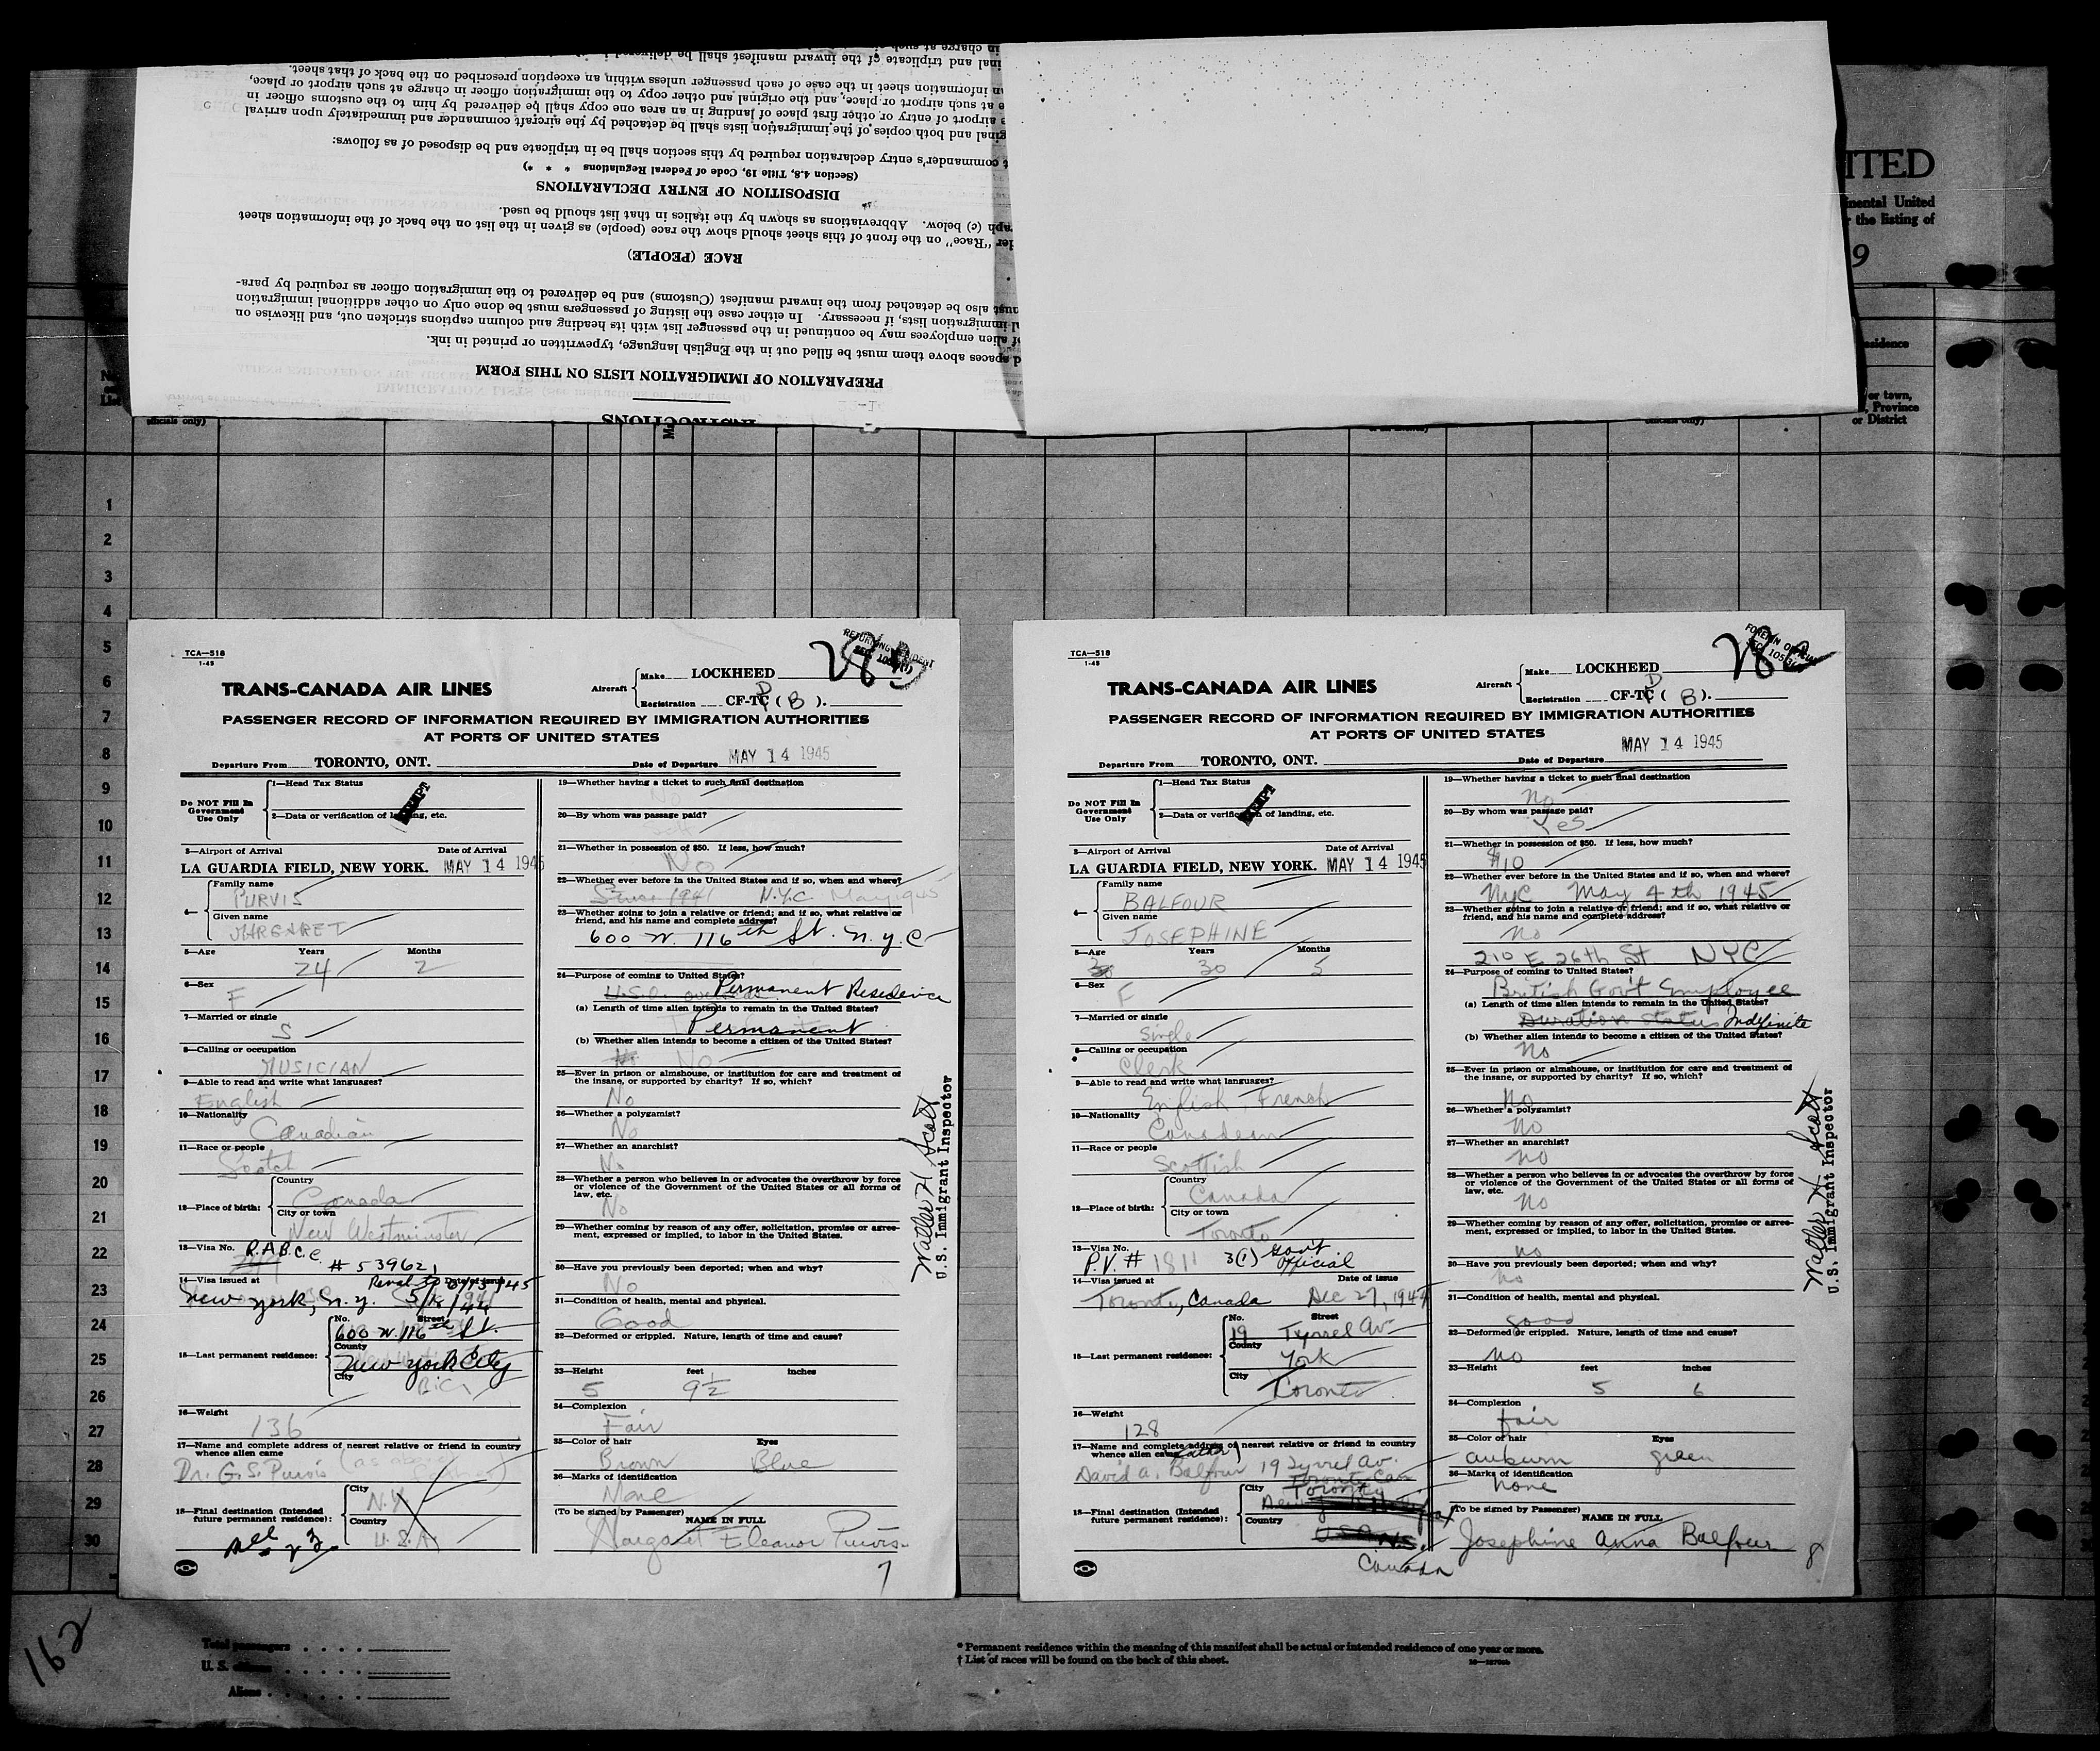 INSTRUCTIONS
PREPARATION OF IMMIGRATION LISTS ON THIS FORM
spaces above them must be filled out in the English language, typewritten or printed in ink.
alien employees may be continued in the passenger list with its heading and column captions stricken out, and likewise on
immigration lists, if necessary. In either case the listing of passengers must be done only on other additional immigration
also be detached from the inward manifest (Customs) and be delivered to the immigration officer as required by para-
RACE (PEOPLE)
"Race" on the front of this sheet should show the race (people) as given in the list on the back of the information sheet
(c) below. Abbreviations as shown by the italics in that list should be used.
DISPOSITION OF ENTRY DECLARATIONS
(Section 4.8, Title 19, Code of Federal Regulations * * *)
commander's entry declaration required by this section shall be in triplicate and be disposed of as follows:
and both copies of the immigration lists shall be detached by the aircraft commander and immediately upon arrival
airport of entry or other first place of landing in an area one copy shall be delivered by him to the customs officer in
at such airport or place, and the original and other copy to the immigration officer in charge at such airport or place,
information sheet in the case of each passenger unless within an exception prescribed on the back of that sheet.
and triplicate of the inward manifest shall be delivered
in charge at such
ITED
inental United
the listing of
9
or town,
Province
or District
officials only)
1
2
3
4
5
6
7
8
9
10
11
12
13
14
15
16
17
18
19
20
21
22
23
24
25
26
27
28
29
30
TCA—518
1-45
Aircraft
Make LOCKHEED
Registration CF-TC ( B ).
TRANS-CANADA AIR LINES
PASSENGER RECORD OF INFORMATION REQUIRED BY IMMIGRATION AUTHORITIES
AT PORTS OF UNITED STATES
Departure From TORONTO, ONT. Date of Departure MAY 14 1945
Do NOT Fill In
Government
Use Only
1—Head Tax Status
EXEMPT
2—Data or verification of landing, etc.
3—Airport of Arrival Date of Arrival
LA GUARDIA FIELD, NEW YORK. MAY 14 1945
4— Family name
PURVIS
Given name
MARGARET
5—Age Years Months
24 2
6—Sex
F
7—Married or single
S
8—Calling or occupation
MUSICIAN
9—Able to read and write what languages?
English
10—Nationality
Canadian
11—Race or people
Scotch
12—Place of birth: Country
Canada
City or town
New Westminster
13—Visa No. R.A.B.C.C.
# 539621
14—Visa issued at Date of issue
New York, N.Y.
15—Last permanent residence: No. Street
600 W. 116th St.
County
New York City
City
B.C.
16—Weight
136
17—Name and complete address of nearest relative or friend in country
whence alien came
Dr. G. S. Purvis
18—Final destination (Intended
future permanent residence): City
N.Y.
Country
U.S.A.
19—Whether having a ticket to such final destination
No
20—By whom was passage paid?
21—Whether in possession of $50. If less, how much?
No
22—Whether ever before in the United States and if so, when and where?
Since 1941 N.Y.C. May 1945
23—Whether going to join a relative or friend; and if so, what relative or
friend, and his name and complete address?
600 W. 116th St. N.Y.C
24—Purpose of coming to United States?
Permanent Residence
(a) Length of time alien intends to remain in the United States?
Permanent
(b) Whether alien intends to become a citizen of the United States?
No
25—Ever in prison or almshouse, or institution for care and treatment of
the insane, or supported by charity? If so, which?
No
26—Whether a polygamist?
No
27—Whether an anarchist?
No
28—Whether a person who believes in or advocates the overthrow by force
or violence of the Government of the United States or all forms of
law, etc.
No
29—Whether coming by reason of any offer, solicitation, promise or agree-
ment, expressed or implied, to labor in the United States.
30—Have you previously been deported; when and why?
No
31—Condition of health, mental and physical.
Good
32—Deformed or crippled. Nature, length of time and cause?
33—Height feet inches
5 9½
34—Complexion
Fair
35—Color of hair Eyes
Brown Blue
36—Marks of identification
None
(To be signed by Passenger)
NAME IN FULL
Margaret Eleanor Purvis
7
Walter H Scott
U.S. Immigrant Inspector
TCA—518
1-45
Aircraft
Make LOCKHEED
Registration CF-TC ( B ).
TRANS-CANADA AIR LINES
PASSENGER RECORD OF INFORMATION REQUIRED BY IMMIGRATION AUTHORITIES
AT PORTS OF UNITED STATES
Departure From TORONTO, ONT. Date of Departure MAY 14 1945
Do NOT Fill In
Government
Use Only
1—Head Tax Status
EXEMPT
2—Data or verification of landing, etc.
3—Airport of Arrival Date of Arrival
LA GUARDIA FIELD, NEW YORK. MAY 14 1945
4— Family name
BALFOUR
Given name
JOSEPHINE
5—Age Years Months
30 5
6—Sex
F
7—Married or single
Single
8—Calling or occupation
Clerk
9—Able to read and write what languages?
English, French
10—Nationality
Canadian
11—Race or people
Scottish
12—Place of birth: Country
Canada
City or town
Toronto
13—Visa No.
P.V. # 1811 3(1) Gov't Official
14—Visa issued at Date of issue
Toronto, Canada Dec 27, 1944
15—Last permanent residence: No. Street
19 Tyrrel Av
County
York
City
Toronto
16—Weight
128
17—Name and complete address of nearest relative or friend in country
whence alien came (father)
David A. Balfour 19 Tyrrel Av.
Toronto Can
18—Final destination (Intended
future permanent residence): City
Toronto
Country
Canada
19—Whether having a ticket to such final destination
No
20—By whom was passage paid?
Yes
21—Whether in possession of $50. If less, how much?
$10
22—Whether ever before in the United States and if so, when and where?
NYC May 4th 1945
23—Whether going to join a relative or friend; and if so, what relative or
friend, and his name and complete address?
no
210 E 26th St. NYC
24—Purpose of coming to United States?
British Gov't Employee
(a) Length of time alien intends to remain in the United States?
Duration status Indefinite
(b) Whether alien intends to become a citizen of the United States?
no
25—Ever in prison or almshouse, or institution for care and treatment of
the insane, or supported by charity? If so, which?
no
26—Whether a polygamist?
no
27—Whether an anarchist?
no
28—Whether a person who believes in or advocates the overthrow by force
or violence of the Government of the United States or all forms of
law, etc.
no
29—Whether coming by reason of any offer, solicitation, promise or agree-
ment, expressed or implied, to labor in the United States.
no
30—Have you previously been deported; when and why?
no
31—Condition of health, mental and physical.
good
32—Deformed or crippled. Nature, length of time and cause?
no
33—Height feet inches
5 6
34—Complexion
fair
35—Color of hair Eyes
auburn green
36—Marks of identification
none
(To be signed by Passenger)
NAME IN FULL
Josephine Anna Balfour
8
Walter H Scott
U.S. Immigrant Inspector
162
Total passengers
U. S. citizens
Aliens
* Permanent residence within the meaning of this manifest shall be actual or intended residence of one year or more.
† List of races will be found on the back of this sheet.